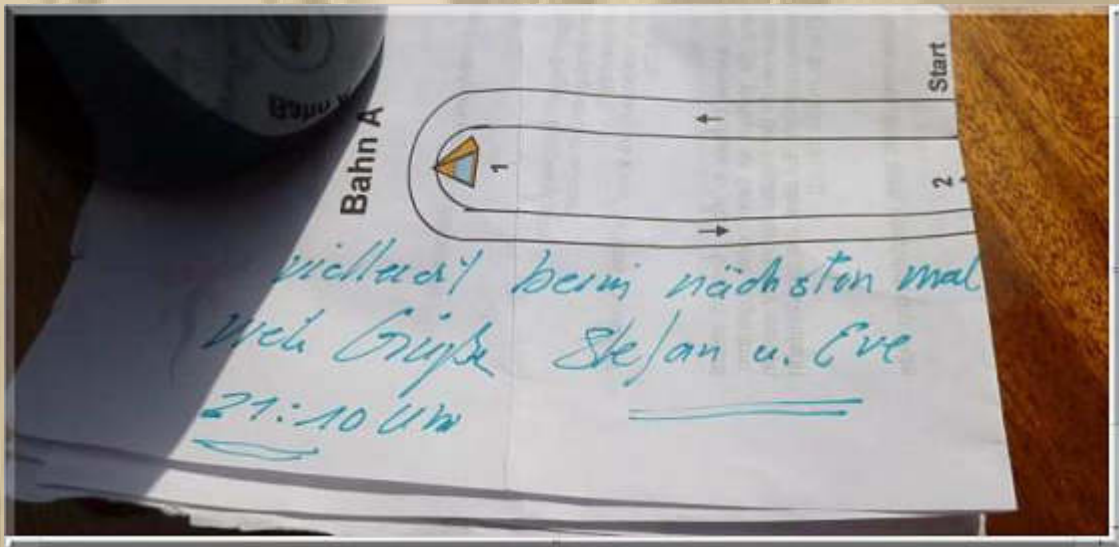 Bahn A
Start
1
2
vielleicht beim nächsten mal
Grüße Stefan u. Eve
21:10 Uhr